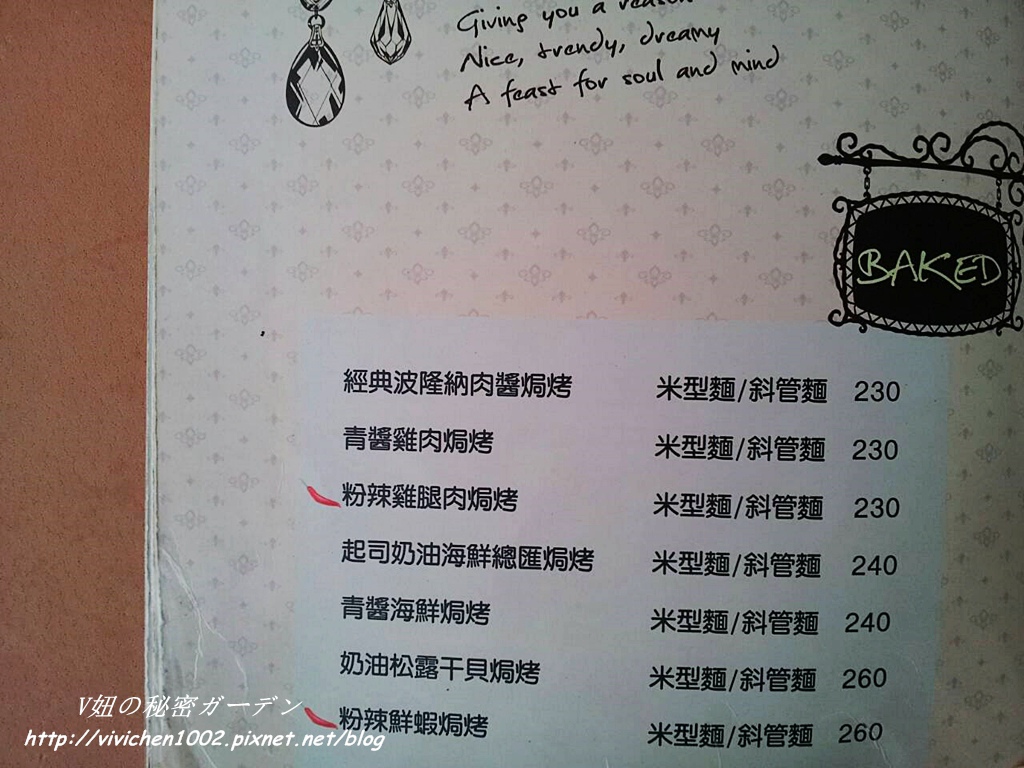 Giving you a reason
Nice, trendy, dreamy
A feast for soul and mind
BAKED
經典波隆納肉醬焗烤 米型麵/斜管麵 230
青醬雞肉焗烤 米型麵/斜管麵 230
粉辣雞腿肉焗烤 米型麵/斜管麵 230
起司奶油海鮮總匯焗烤 米型麵/斜管麵 240
青醬海鮮焗烤 米型麵/斜管麵 240
奶油松露干貝焗烤 米型麵/斜管麵 260
粉辣鮮蝦焗烤 米型麵/斜管麵 260
V妞の秘密ガーデン
http://vivichen1002.pixnet.net/blog